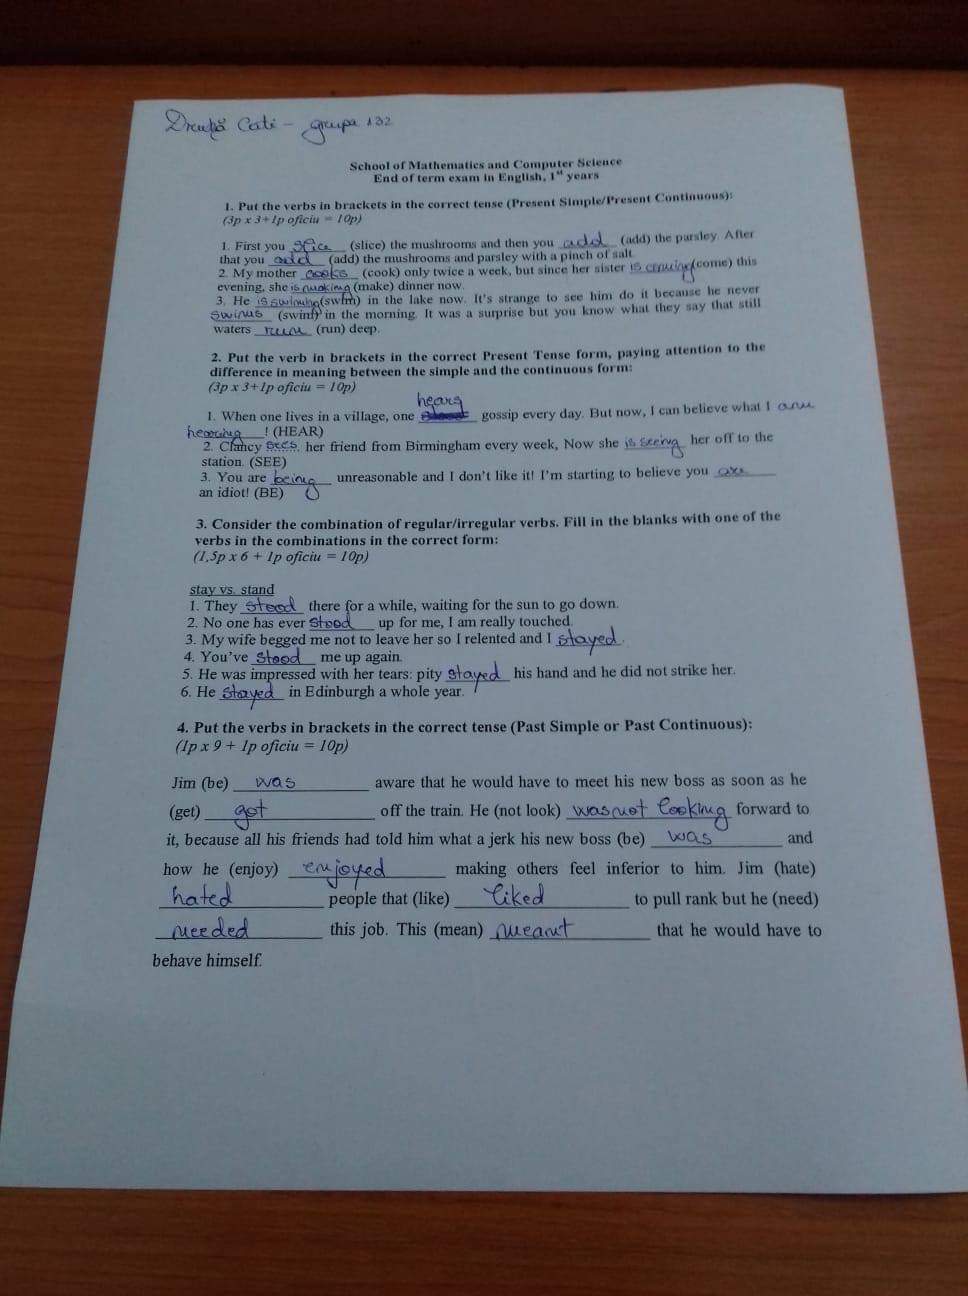 Cati - grupa 132
School of Mathematics and Computer Science
End of term exam in English, 1st years
1. Put the verbs in brackets in the correct tense (Present Simple/Present Continuous):
(3p x 3+1p oficiu = 10p)
1. First you slice (slice) the mushrooms and then you add (add) the parsley. After
that you add (add) the mushrooms and parsley with a pinch of salt.
2. My mother cooks (cook) only twice a week, but since her sister is coming (come) this
evening, she is making (make) dinner now.
3. He is swiming (swim) in the lake now. It's strange to see him do it because he never
swims (swim) in the morning. It was a surprise but you know what they say that still
waters run (run) deep.
2. Put the verb in brackets in the correct Present Tense form, paying attention to the
difference in meaning between the simple and the continuous form:
(3p x 3+1p oficiu = 10p)
hears
1. When one lives in a village, one gossip every day. But now, I can believe what I am
hearing! (HEAR)
2. Clancy sees her friend from Birmingham every week, Now she is seeing her off to the
station. (SEE)
3. You are being unreasonable and I don't like it! I'm starting to believe you are
an idiot! (BE)
3. Consider the combination of regular/irregular verbs. Fill in the blanks with one of the
verbs in the combinations in the correct form:
(1,5p x 6 + 1p oficiu = 10p)
stay vs. stand
1. They stood there for a while, waiting for the sun to go down.
2. No one has ever stood up for me, I am really touched.
3. My wife begged me not to leave her so I relented and I stayed.
4. You've stood me up again.
5. He was impressed with her tears: pity stayed his hand and he did not strike her.
6. He stayed in Edinburgh a whole year.
4. Put the verbs in brackets in the correct tense (Past Simple or Past Continuous):
(1p x 9 + 1p oficiu = 10p)
Jim (be) was aware that he would have to meet his new boss as soon as he
(get) got off the train. He (not look) was not looking forward to
it, because all his friends had told him what a jerk his new boss (be) was and
how he (enjoy) enjoyed making others feel inferior to him. Jim (hate)
hated people that (like) liked to pull rank but he (need)
needed this job. This (mean) meant that he would have to
behave himself.